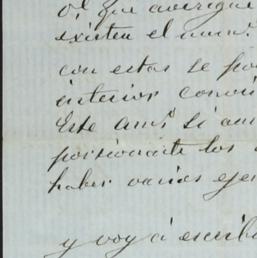 que averigue
existen el num.
con estas se
interior
Este am.º si
los
haber varios
y voy á escrib